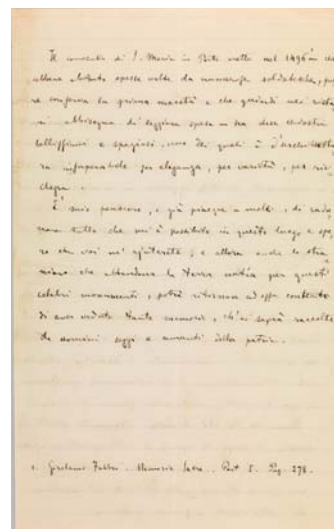 Il convento di S. Maria in Porto eretto nel 1496 in
abbenchè spesse volte da numerose soldatesche, pu
re conserva la prima maestà e che quindi nei
abbisogna di leggiera spesa in due chiostri
bellissimi e spaziosi, uno dei quali è d'architettu
ra insuperabile per eleganza, per varietà, per ric
chezza.
È mio pensiero, e già piacque a molti, di radu
nare tutto che mi è possibile in questo luogo e spe
ro che voi m'ajuterete; e allora anche lo stra
niero che abbandona la terra natìa per questi
celebri monumenti, potrà ritornare ad essa contento
di aver vedute tante memorie, ch'ei saprà raccolte
da uomini saggi e amanti della patria.
1. Girolamo Fabbri. Memorie Sacre. Part. I. Pag. 278.